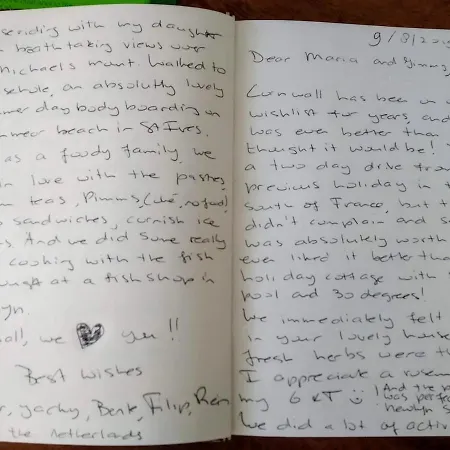 seriding with my daught
breathtaking views over
Michaels mount. Walked to
schole, an absolutly lovely
mer day body boarding on
meor beach in St Ives.
as a foody family, we
in love with the pasties,
m teas, Pimms,
sandwiches, cornish ice
s. And we did some really
cooking with the fish
ought at a fish shop in
yn.
all, we you!!
Best wishes
yachy, Bente, Filip, Rem
the netherlands
9/8/201
Dear Maria and
Cornwall has been on
wishlist for years, and
was even better than
thought it would be!
a two day drive from
previous holiday in t
south of France, but t
didn't complain and s
was absolutely worth
even liked it better tha
holiday cottage with
pool and 30 degrees!
We immediately felt
in your lovely house
Fresh herbs were th
I appreciate a rosem
my G&T ! And the p
was perf
newlyn s
We did a lot of activ